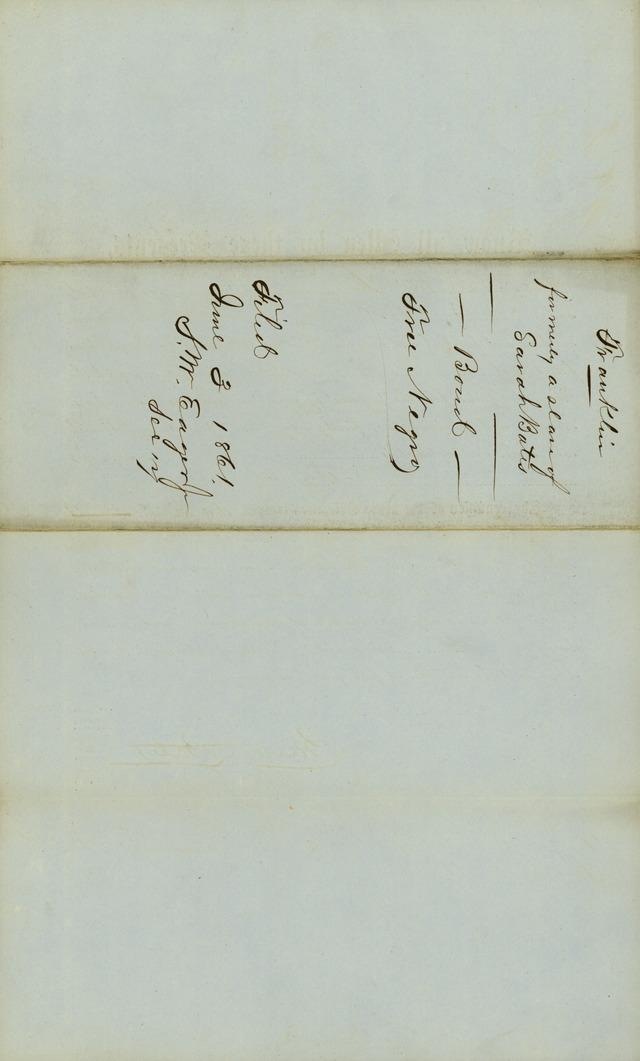 Franklin
formerly a slave of
Sarah Bates
— Bond —
Free Negro
Filed
June 3 1861.
S. W. Eager Jr